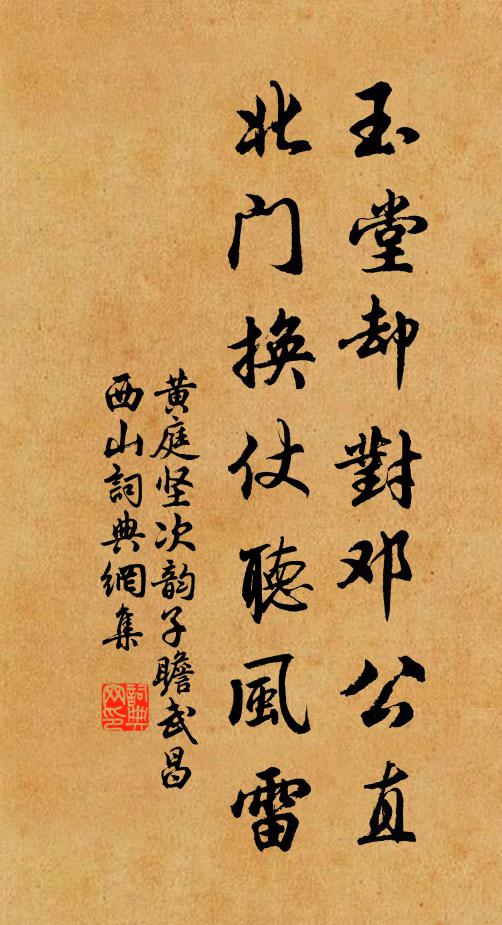 玉堂却對邓公直
北门换仗聽風雷
黄庭坚次韵子瞻武昌
西山詞典網集
詞典网印